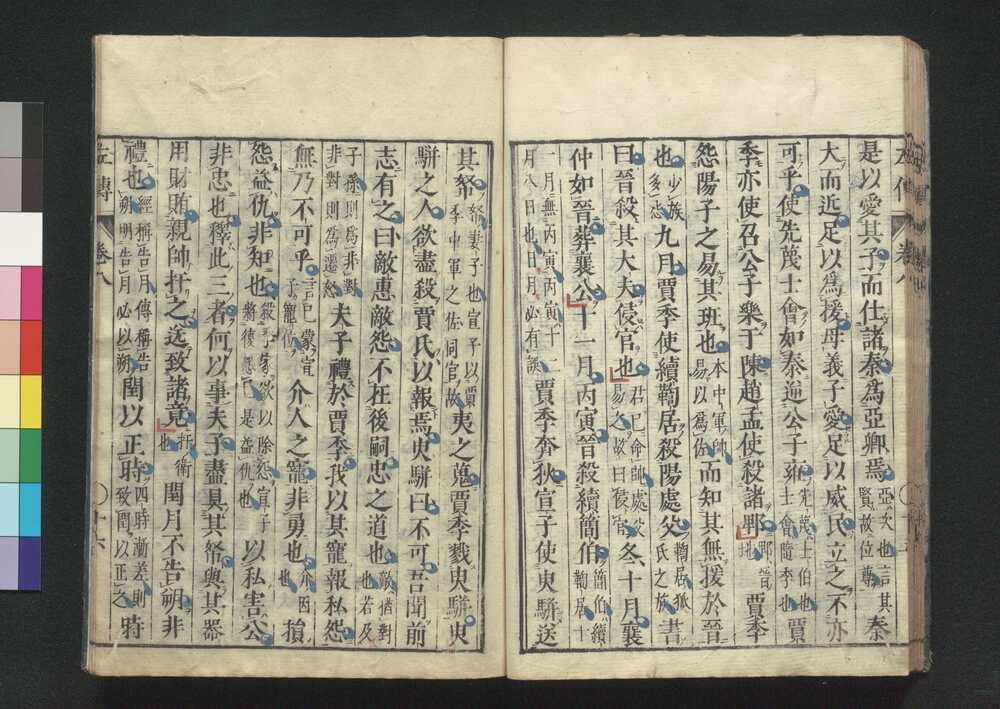 左傳 卷八
是以愛其子而仕諸秦爲亞卿焉亞次也言其賢故位尊秦
大而近足以爲援母義子愛足以威民立之不亦
可乎使先蔑士會如秦逆公子雍先蔑士伯也士會隨季也賈
季亦使召公子樂于陳趙孟使殺諸郫郫晉地賈季
怨陽子之易其班也本中軍帥易以爲佐而知其無援於晉
也少族多怨九月賈季使續鞫居殺陽處父鞫居狐氏之族書
曰晉殺其大夫侵官也君已命帥處父易之故曰侵官冬十月襄
仲如晉葬襄公十一月丙寅晉殺續簡伯簡伯續鞫居十
一月無丙寅丙寅十二月八日也日月必有誤賈季奔狄宣子使臾駢送
其帑帑妻子也宣子以賈季中軍之佐同官故夷之蒐賈季戮臾駢臾
駢之人欲盡殺賈氏以報焉臾駢曰不可吾聞前
志有之曰敵惠敵怨不在後嗣忠之道也敵猶對也若及
子孫則爲非對非對則爲遷怒夫子禮於賈季我以其寵報私怨
無乃不可乎言己蒙宣子寵位介人之寵非勇也介因也損
怨益仇非知也殺季家欲以除怨宣子將復怨己是益仇也以私害公
非忠也釋此三者何以事夫子盡具其帑與其器
用財賄親帥扞之送致諸竟扞衞也閏月不告朔非
禮也經稱告月傳稱告朔明告月必以朔閏以正時四時漸差則致閏以正之時
左傳 卷八 十六